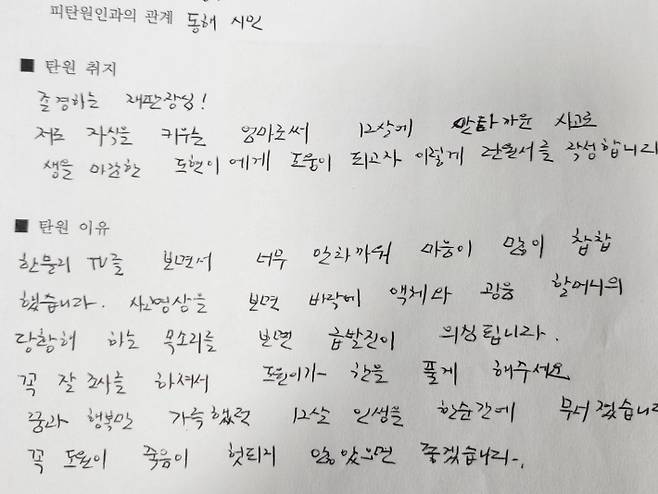 피탄원인과의 관계 동해 시민
■ 탄원 취지
존경하는 재판장님!
저도 자식을 키우는 엄마로써 12살에 안타까운 사고로
생을 마감한 도현이에게 도움이 되고자 이렇게 탄원서를 작성합니다
■ 탄원 이유
한문철 TV를 보면서 너무 안타까워 마음이 많이 찹찹
했습니다. 사고영상을 보면 바닥에 액체와 굉음 할머니의
당황해 하는 목소리를 보면 급발진이 의심됩니다.
꼭 잘 조사를 하셔서 도현이가 한을 풀게 해주세요
꿈과 행복만 가득했던 12살 인생을 한순간에 무너졌습니다
꼭 도현이 죽음이 헛되지 않았으면 좋겠습니다.